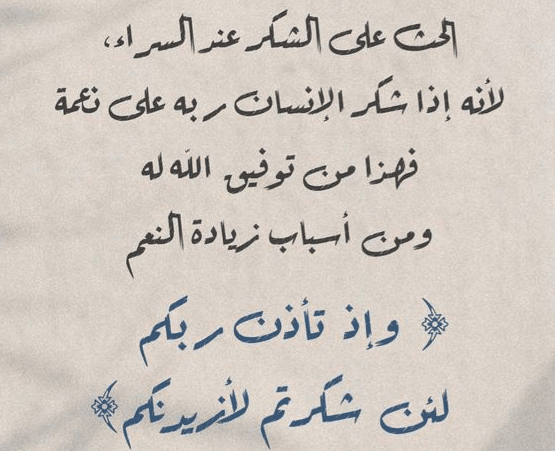 الحث على الشكر عند السراء،
لأنه إذا شكر الإنسان ربه على نعمة
فهذا من توفيق الله له
ومن أسباب زيادة النعم
﴿ وإذ تأذن ربكم
لئن شكرتم لأزيدنكم ﴾